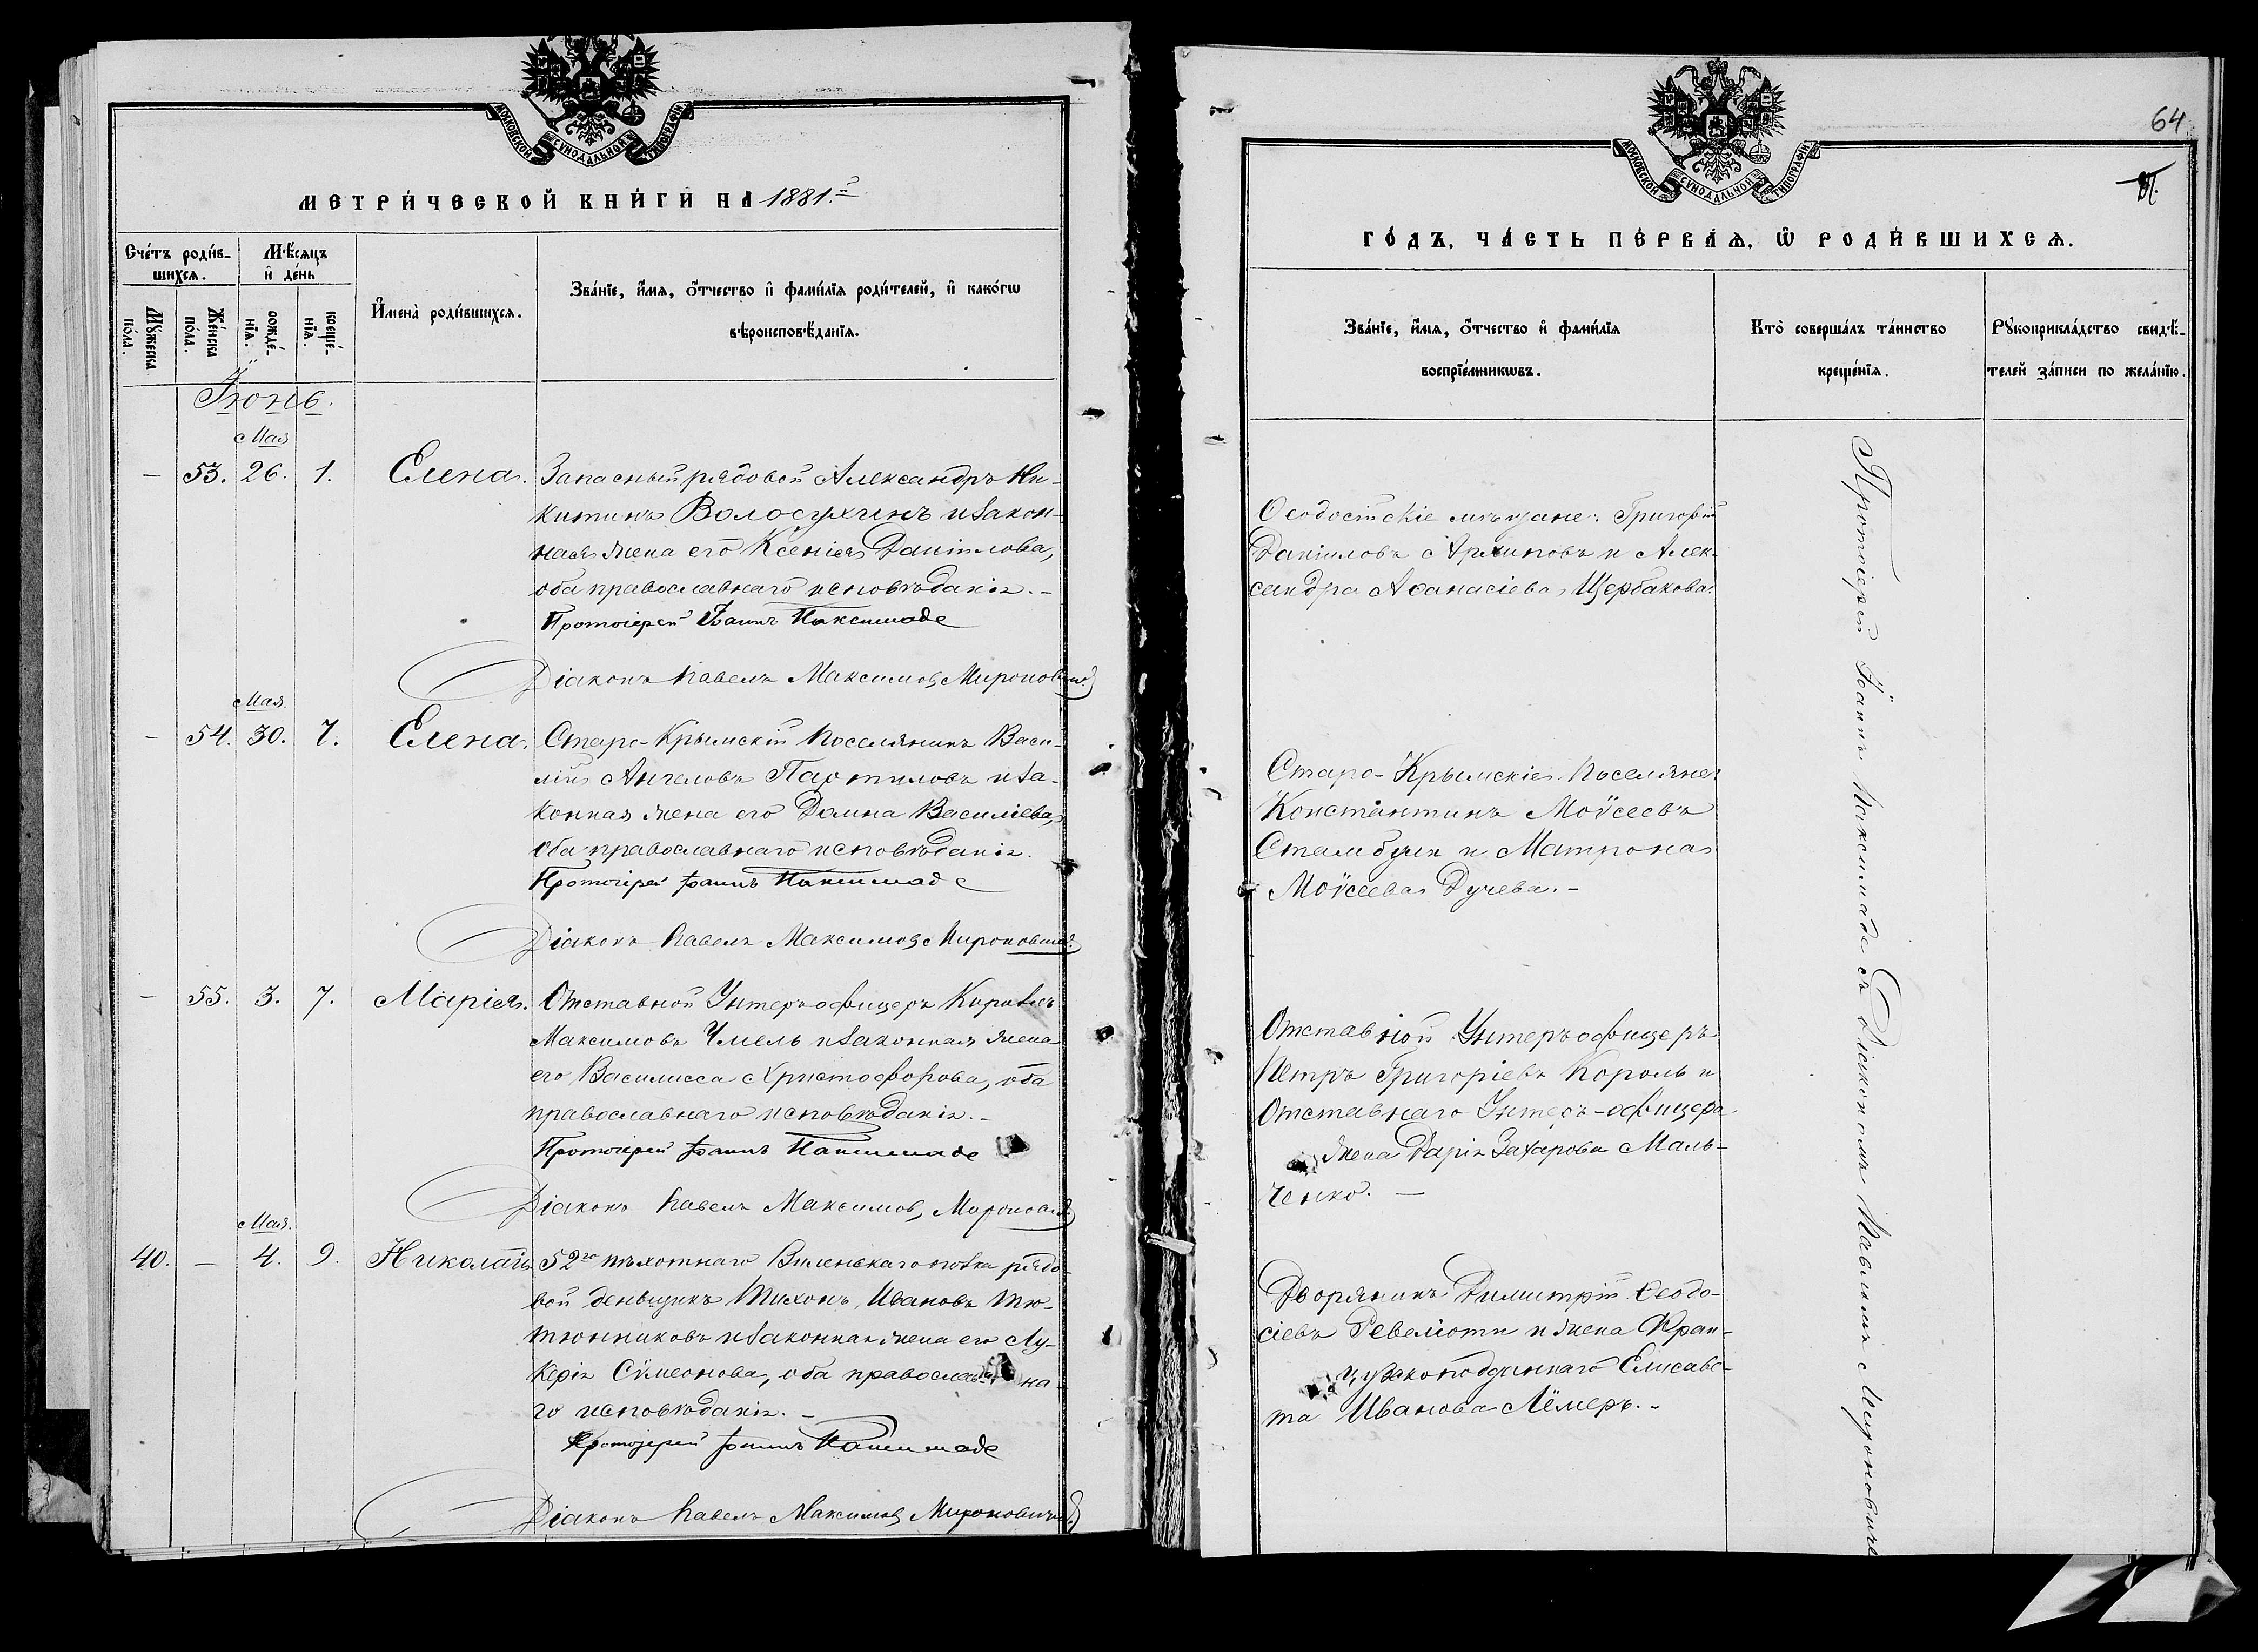 МОСКОВСКОЙ СѴНОДАЛЬНОЙ ТИПОГРАФІИ
МЕТРИ́ЧЕСКОЙ КНИ́ГИ НА 1881.й
Сче́тъ роди́в-
шихся.
Мꙋ́жеска
по́ла.
Же́нска
по́ла.
Мѣ́сяцъ
и҆ де́нь
рожде́-
нїя.
креще́-
нїя.
И҆мена̀ роди́вшихся.
Зва́нїе, и҆́мя, ѻ҆́тчество и҆ фами́лїя роди́телей, и҆ како́гѡ
вѣроисповѣ́данїя.
Іюнь.
Мая
— 53. 26. 1. Елена. Запасный рядовой Александръ Ни-
китинъ Волосухинъ и закон-
ная жена его Ксенія Даніилова,
оба православнаго исповѣданія.-
Протоіерей Іоаннъ
Діаконъ Павелъ Максимовъ Мироновичъ
Мая.
— 54. 30. 7. Елена. Старо-Крымскій поселянинъ Васи-
лій Ангеловъ и за-
конная жена его Домна Василіева,
оба православнаго исповѣданія.
Протоіерей Іоаннъ
Діаконъ Павелъ Максимовъ Мироновичъ
— 55. 3. 7. Марія. Отставной Унтеръ-офицеръ Кириллъ
Максимовъ Чмель и законная жена
его Василисса Христофорова, оба
православнаго исповѣданія.-
Протоіерей Іоаннъ
Діаконъ Павелъ Максимовъ Мироновичъ
Мая.
40. — 4. 9. Николай 52го пѣхотнаго Виленскаго полка рядо-
вой деньщикъ Тихонъ Ивановъ Тю-
тюнниковъ и законная жена его Лу-
керія Сѵмеонова, оба православ-на-
го исповѣданія.-
Протоіерей Іоаннъ
Діаконъ Павелъ Максимовъ Мироновичъ
64
МОСКОВСКОЙ СѴНОДАЛЬНОЙ ТИПОГРАФІИ
ГО́ДЪ, ЧА́СТЬ ПЕ́РВАЯ, Ѡ҆ РОДИ́ВШИХСЯ.
Зва́нїе, и҆́мя, ѻ҆́тчество и҆ фами́лїя
воспрїе́мникѡвъ.
Кто̀ соверша́лъ та́инство
креще́нїя.
Рꙋкоприкла́дство свидѣ́-
телей за́писи по жела́нїю.
Ѳеодосійскіе мѣщане: Григорій
Даніиловъ Архиповъ и Алек-
сандра Аѳанасіева Щербакова.
Старо-Крымскіе поселяне:
Константинъ Моѵсеевъ
Стамбули и Матрона
Моѵсеева Дучева.-
Отставной Унтеръ офицеръ
Петръ Григоріевъ Король и
Отставнаго Унтеръ-офицера
жена Дарія Захарова Маль-
ченко. —
Дворянинъ Димитрій Ѳеодо-
сіевъ Ревеліоти и жена Фран-
цузкоподданнаго Елисаве-
та Иванова Лёмеръ.-
Протоіерей Іоаннъ съ Діакономъ Павломъ Мироновичемъ